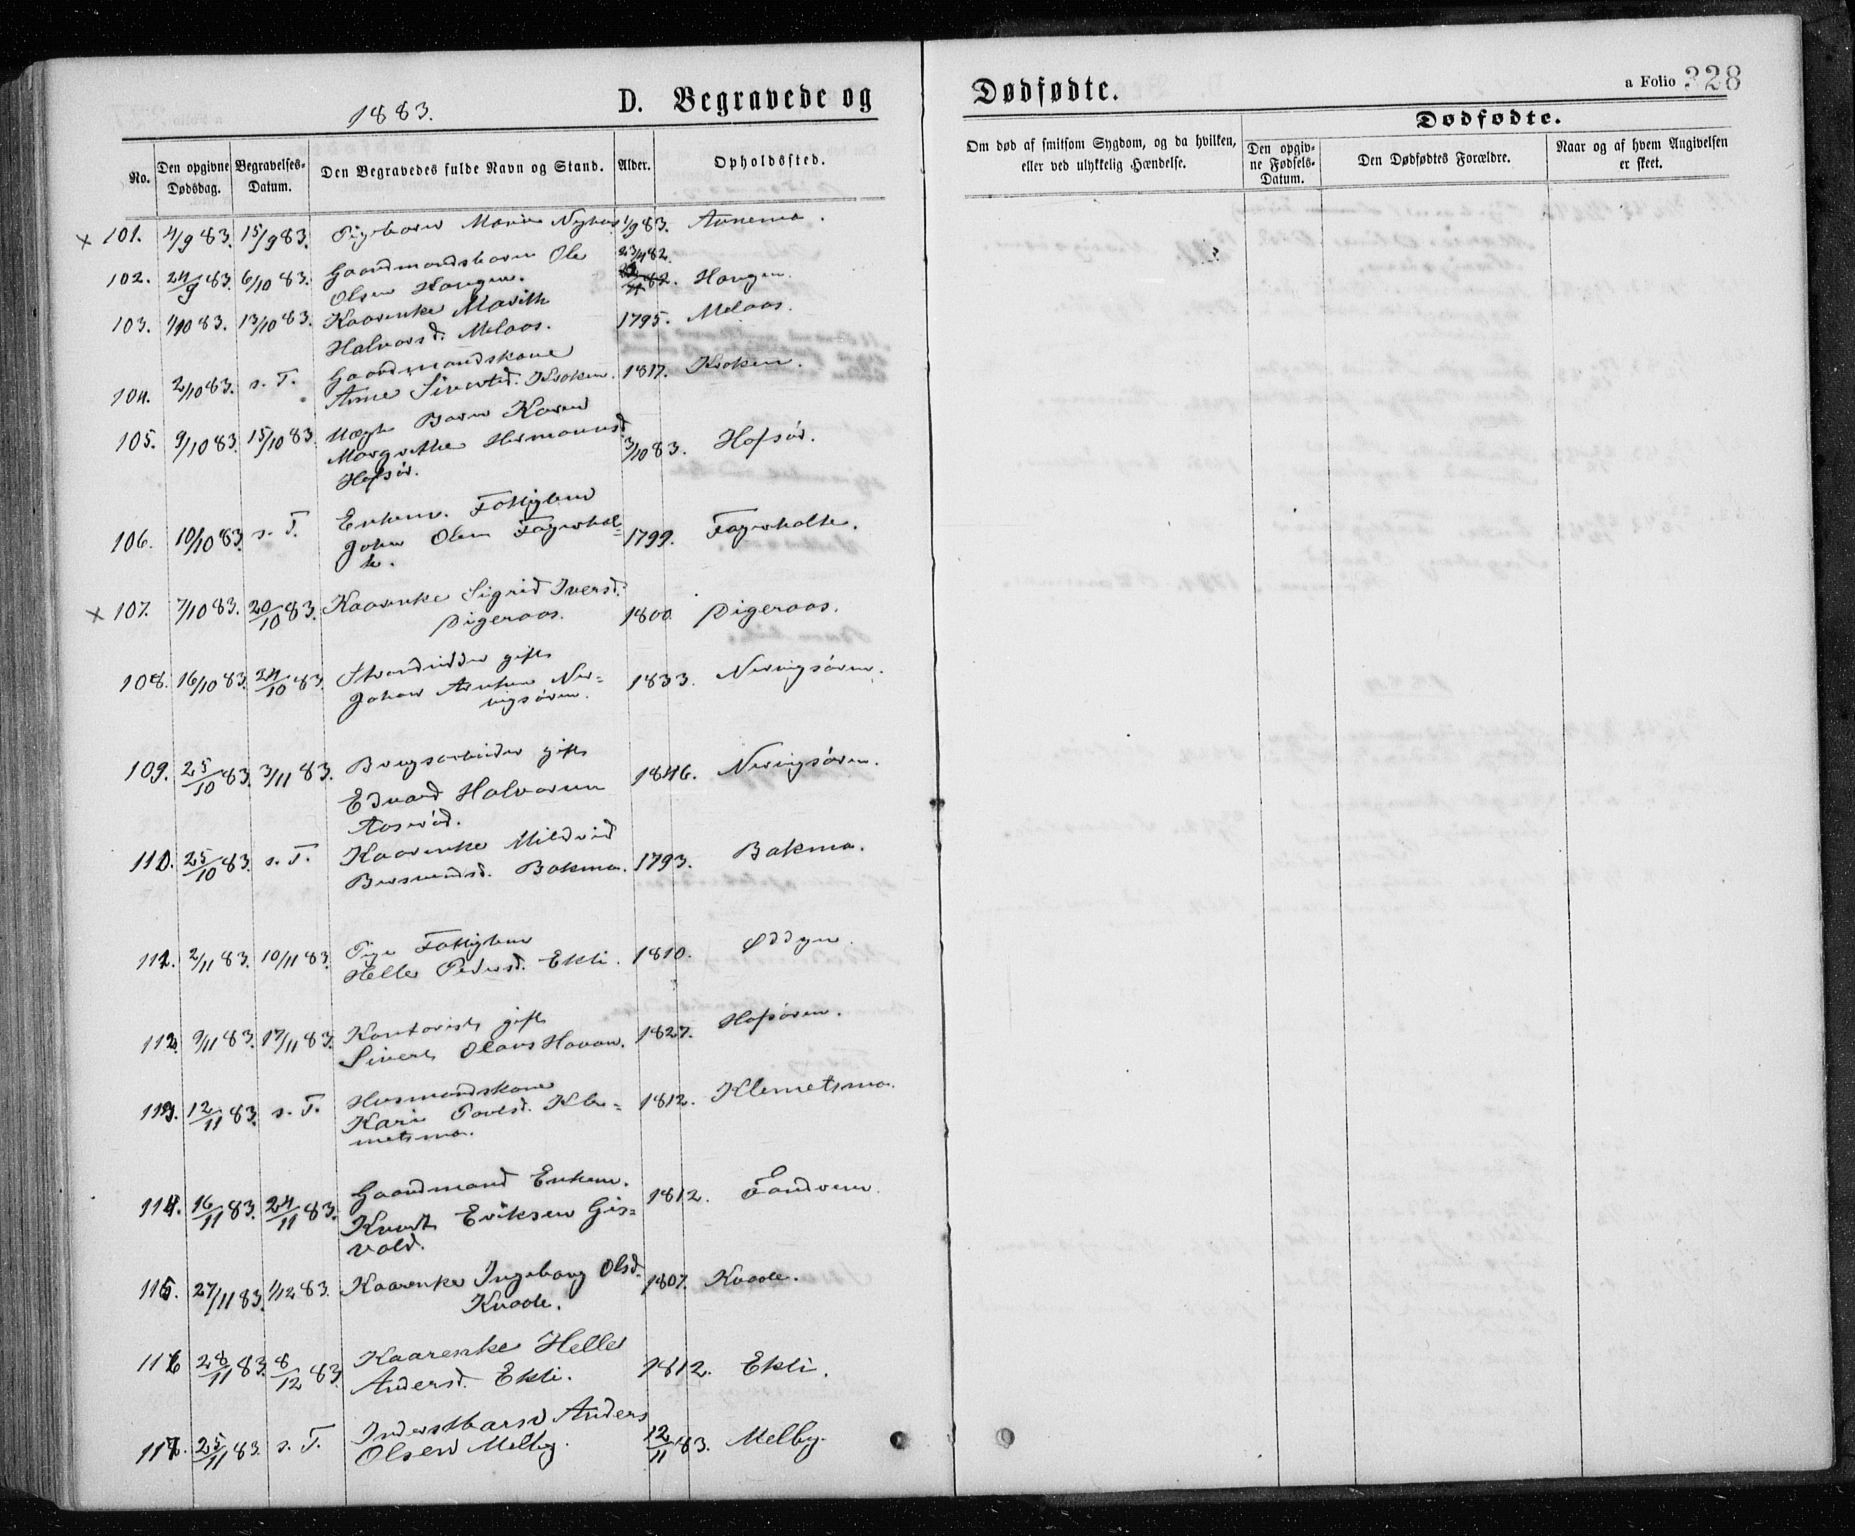 1883.
D. Begravede og
Dødfødte.
a Folio 328
No.
Den opgivne Dødsdag.
Begravelses-Datum.
Den Begravedes fulde Navn og Stand.
Alder.
Opholdssted.
Om død af smitsom Sygdom, og da hvilken, eller ved ulykkelig Hændelse.
Dødfødte.
Den opgiv-
ne Fødsels-
Datum.
Den Dødfødtes Forældre.
Naar og af hvem Angivelsen er skeet.
x 101. 4/9 83. 15/9 83. Pigebarn Marie 1/9 83.
102. 24/9 83. 6/10 83. Gaardmandsbarn Ole 23/4 82.
Olsen Haugen. 82. Haugen.
103. 1/10 83. 13/10 83. Kaarenke Marith 1795. Melaas.
Halvorsd. Melaas.
104. 2/10 83. s. T. Gaardmandskone
Anne Sivertsd. Kroken. 1817. Kroken.
105. 9/10 83. 15/10 83. Uægte Barn Karen
Margrethe Hermannsd. 3/10 83. Hofsør.
Hofsør.
106. 10/10 83. s. T. Enkem. Fattiglem
John Olsen Fagerhol- 1799. Fagerholte.
te.
x 107. 7/10 83. 20/10 83. Kaarenke Sigrid Iversd.
Digeraas. 1800. Digeraas.
108. 16/10 83. 24/10 83. Strandsidder gift
Johan Arntsen Ner- 1833. Nervigsøren.
vigsøren.
109. 25/10 83. 3/11 83. Brugsarbeider gift
Edvard Halvorsen 1846. Nervigsøren.
Aaserød.
110. 25/10 83. s. T. Kaarenke Mildrid
Bersvendsd. Bakmo. 1793. Bakmo.
111. 2/11 83. 10/11 83. Pige Fattiglem
Helle Pedersd. Ekli. 1810. Øddyn.
112. 9/11 83. 17/11 83. Kontorist gift
Sivert Olaus Hovan. 1827. Hofsøren.
113. 12/11 83. s. T. Husmandskone
Kari Povelsd. Kle- 1812. Klemetsmo.
metsmo.
114. 16/11 83. 24/11 83. Gaardmand Enkem.
Knudt Eriksen Gis- 1812. Fandrem.
vold.
115. 27/11 83. 1/12 83. Kaarenke Ingeborg Olsd.
Kvaale. 1807. Kvaale.
116 28/11 83. 8/12 83. Kaarenke Helle
Andersd. Ekli. 1812. Ekli.
117. 25/11 83. s. T. Inderstbarn Anders
Olsen Melby. 12/11 83. Melby.